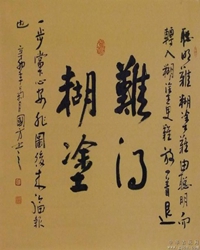 聰明難糊塗難由聰明而
轉入糊塗更難放一著退
難得
糊塗
一步當心安非圖後來福報
也